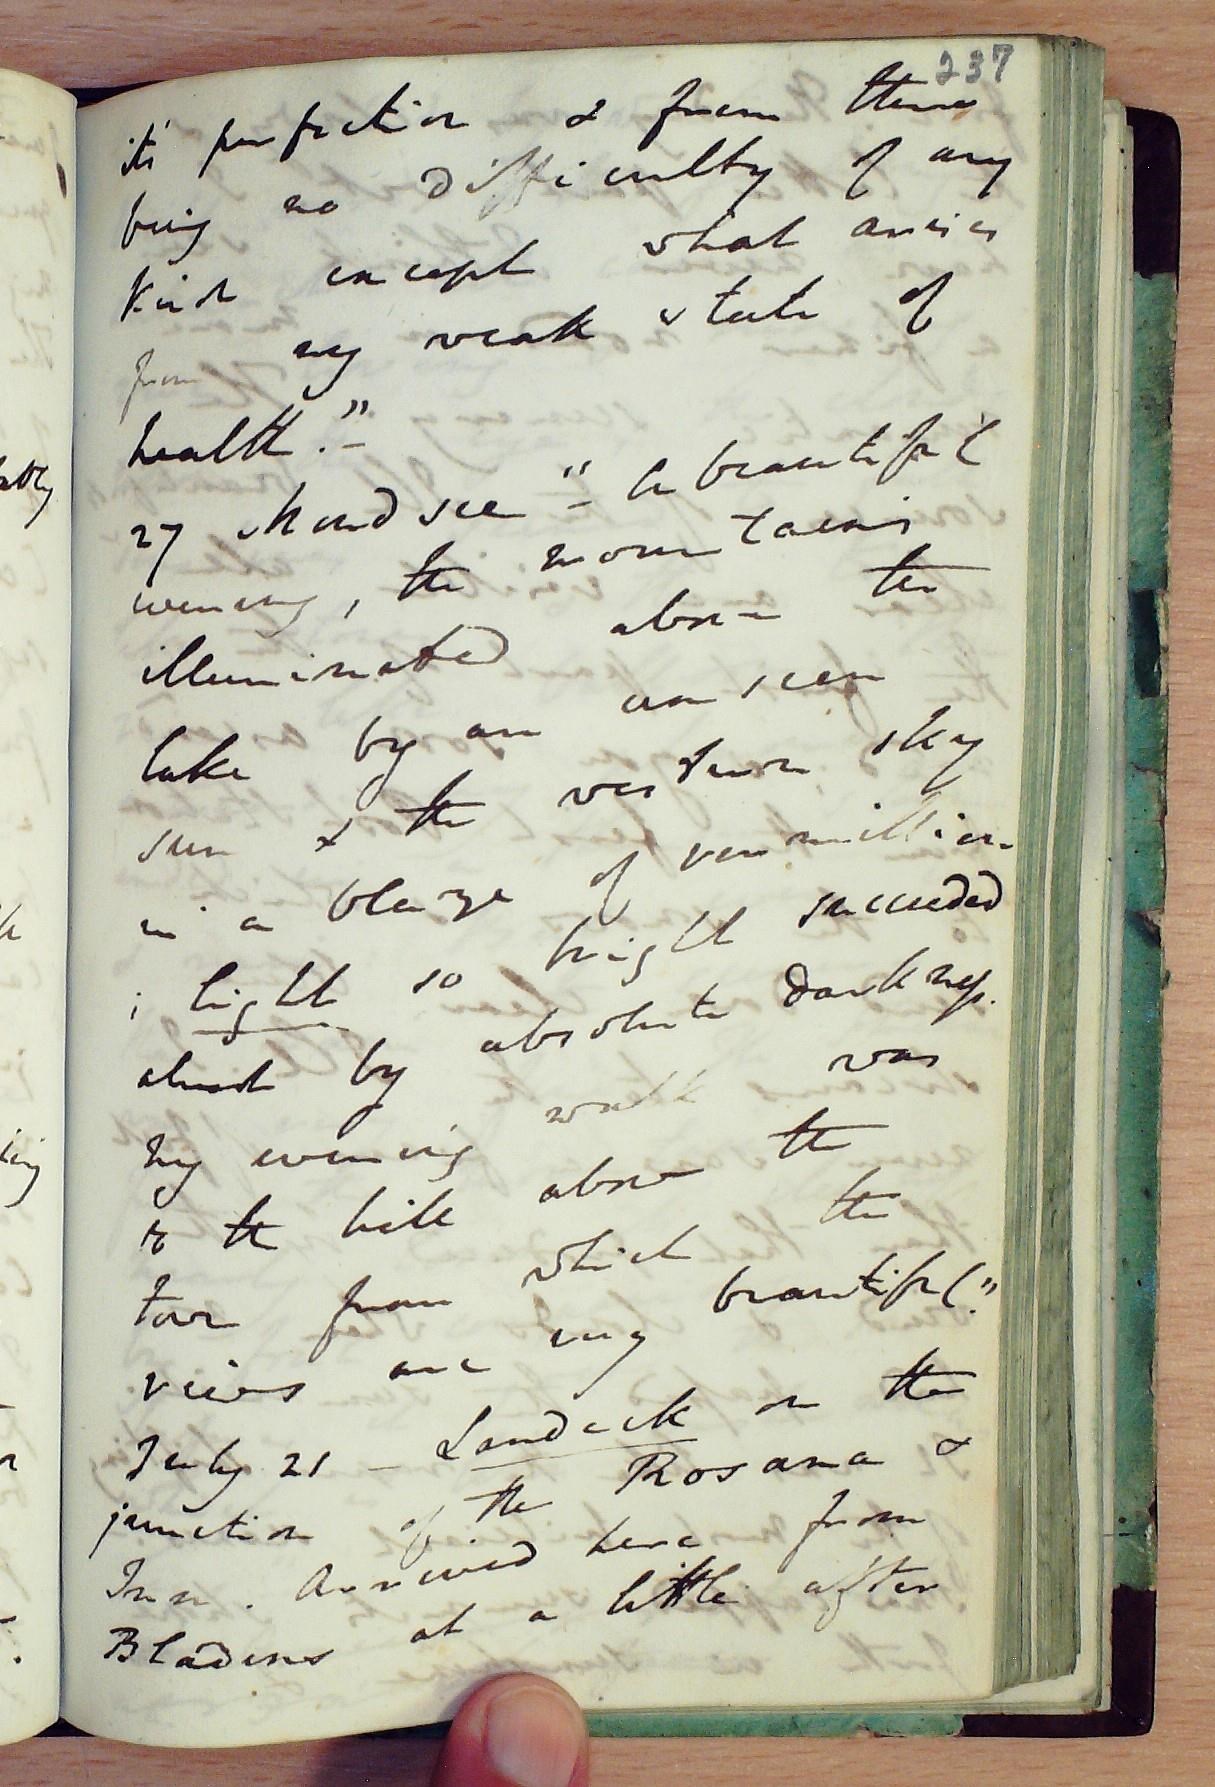 237
its perfection & from there
being no difficulty of any
kind except what arises
from my weak state of
health."–
27 "– A beautiful
evening, the mountains
illuminated above the
lake by an unseen
sun & the western sky
in a blaze of vermillion
; light so bright succeeded
almost by absolute darkness.
My evening walk was
to the hill above the
town from which the
views are very beautiful".
July 21 – Landeck on the
junction of the Rosana &
Inn. Arrived here from
Bludens at a little after